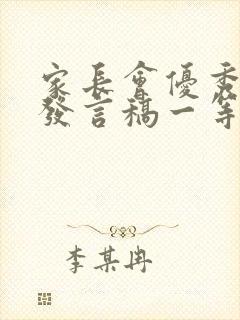 家長會優秀
發言稿一等
李某冉